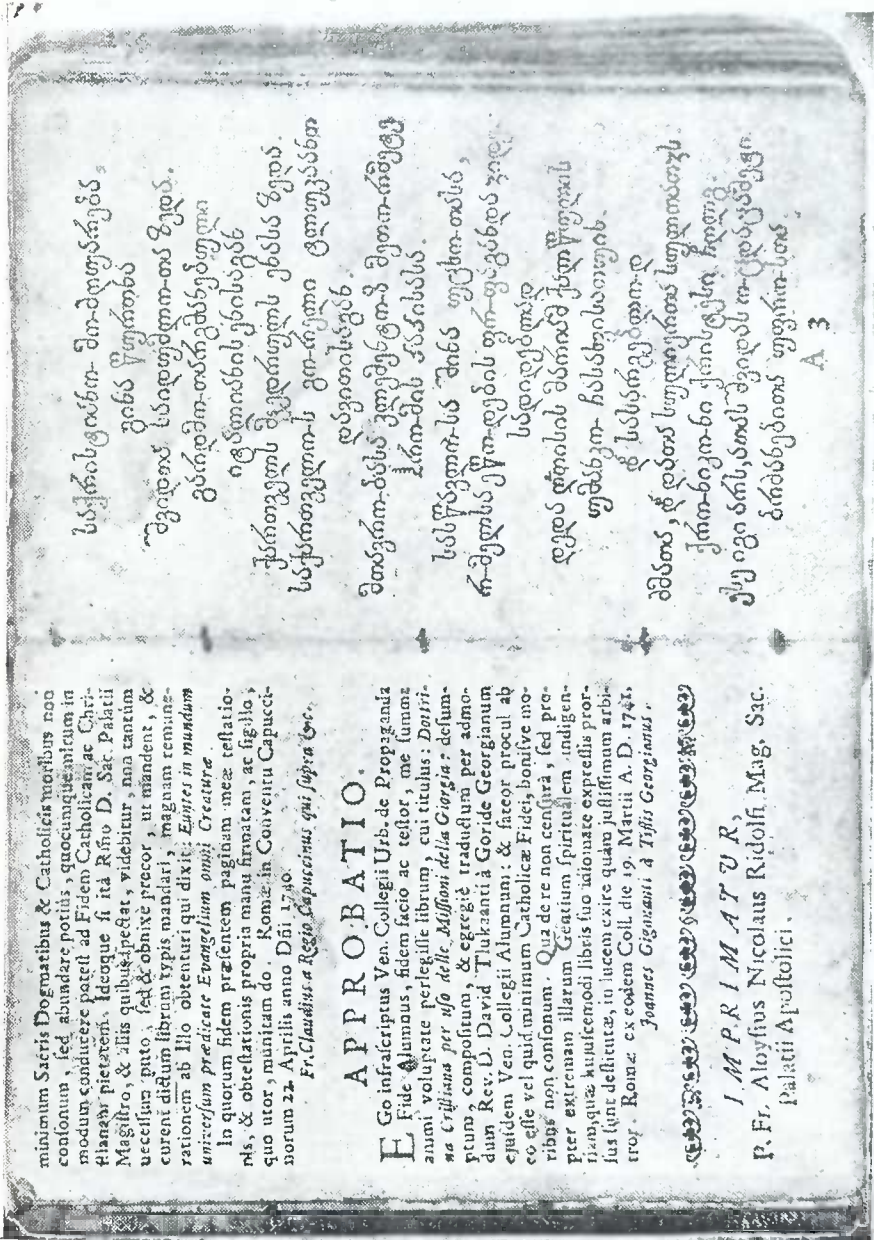 minimum Sacris Dogmatibus & Catholicis moribus non
consonum, sed abundare potius, quocumque micum in
modum conducere potest ad Fidem Catholicam ac Chri-
stianam pietatem. Ideoque si ità Rmo D. Sac. Palatii
Magistro, & aliis quibus spectat, videbitur, non tantùm
necessum puto, sed & obnixe precor, ut mandent, &
curent dictum librum typis mandari, magnam remune-
rationem ab Illo obtenturi qui dixit: Euntes in mundum
universum prædicate Evangelium omni Creaturæ.
In quorum fidem præsentem paginam meæ testatio-
nis, & obtestationis propria manu firmatam, ac sigillo,
quo utor, munitam do. Romæ in Conventu Capucci-
norum 22. Aprilis anno Dñi 1740.
Fr. Claudius a Regio Capuccinus qui supra &c.
APPROBATIO.
EGo infrascriptus Ven. Collegii Urb. de Propaganda
Fide Alumnus, fidem facio ac testor, me summa
animi voluptate perlegisse librum, cui titulus: Dottri-
na Cristiana per uso delle Missioni della Giorgia: desum-
ptum, compositum, & egregiè traductum per admo-
dum Rev. D. David Tlukaanti à Goride Georgianum
ejusdem Ven. Collegii Alumnum: & fateor procul ab
eo esse vel quid minimum Catholicæ Fidei, bonisve mo-
ribus non consonum. Qua de re non censurâ, sed pro-
pter extremam illarum Gentium spiritualem indigen-
tiam, quæ hujuscemodi libris suo idiomate expressis pror-
sus sunt destitutæ, in lucem exire quàm justissimum arbi-
tror. Romæ ex eodem Coll. die 19. Martii A. D. 1741.
Joannes Gigonanti à Tiflis Georgianus.
IMPRIMATUR,
P. Fr. Aloysius Nicolaus Ridolfi Mag. Sac.
Palatii Apostolici.
საქრისტიანო მოძღვრება,
გინა წურთნა
შვიდთა საიდუმლოთა ზედა.
გარდმოთარგმანებული
იტალიანის ენისაგან
ქართველს მხედრულს ენასა ზედა.
საქართველოს გორელი ტლუკაანთ
დავითისაგან.
მთავრობასა კლემენტოზ მეთორმეტე
ჰრომის პაპისასა.
სასწავლოსა შინა
სადიდებლად
დედა ღთისის მარიამ ქალწულის
ძმათა,
A 3